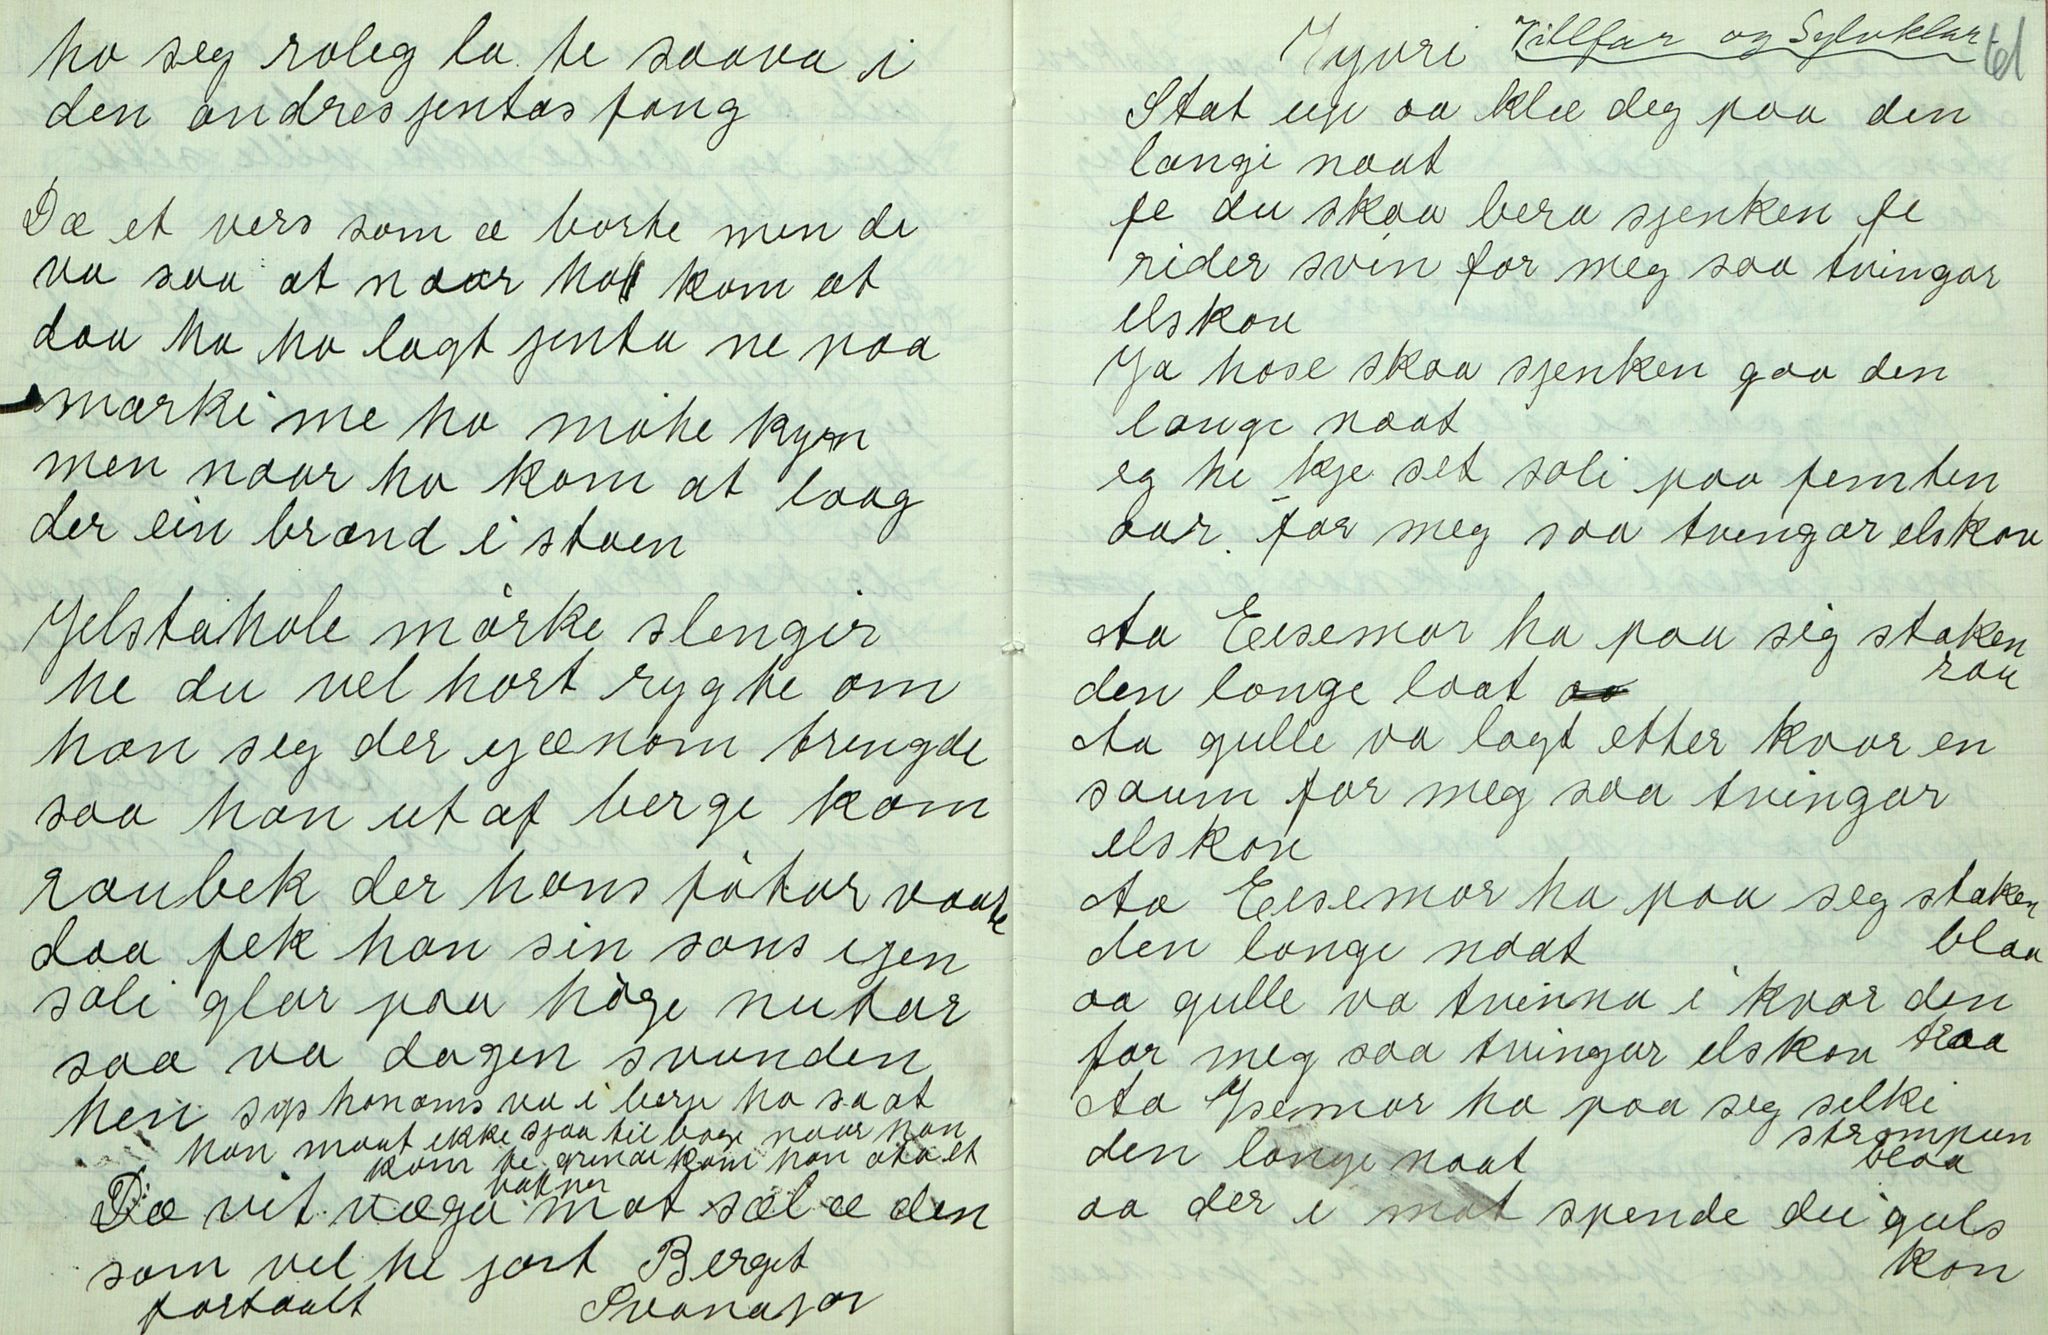 ho seg roleg la te saava i
den andres jentas fang
Dæ et vers som æ borte men de
va saa at naar ho kom at
daa ho ha lagt jenta ne paa
marki me ho mohe kyrn
men naar ho kom at laag
der ein brand i stoen
Jelstahole mörke slengir
he du vel hort rygte om
han seg der gjænom trengde
saa han ut af berge kom
raubek der hans fötar vaate
daa fek han sin sans igen
soli glar paa höge nutar
saa va dagen svunden
hen sys honoms va i berje ho sa at
han maat ikke sjaa tilbage naar han
kom te grinde kom han ata et
Dæ vit væga mot sæl æ den
som vel he jort Berget
fortaalt Svanajor
Iyvri Villfar og Sylvklar
61
Stat up aa klæ deg paa den
langi naat
fe du skaa bera sjenken fe
rider svin for meg saa tvingar
elskou
Ja hose skaa sjenken gaa den
lange naat
eg he kje set soli paa femten
aar. for meg saa tvingar elskou
Aa Eisemor ha paa sig staken
rau
den lange laat
Aa gulle va lagt etter kvar en
saum for meg saa tvingar
elskou
Aa Eisemor ha paa seg staken
blaa
den lange naat
aa gulle va tvinna i kvar den
traa
for meg saa tvingar elskou
Aa Isemor ha paa seg silki
strompun
blaa
den lange naat
aa der i mot spende dei guls
kon